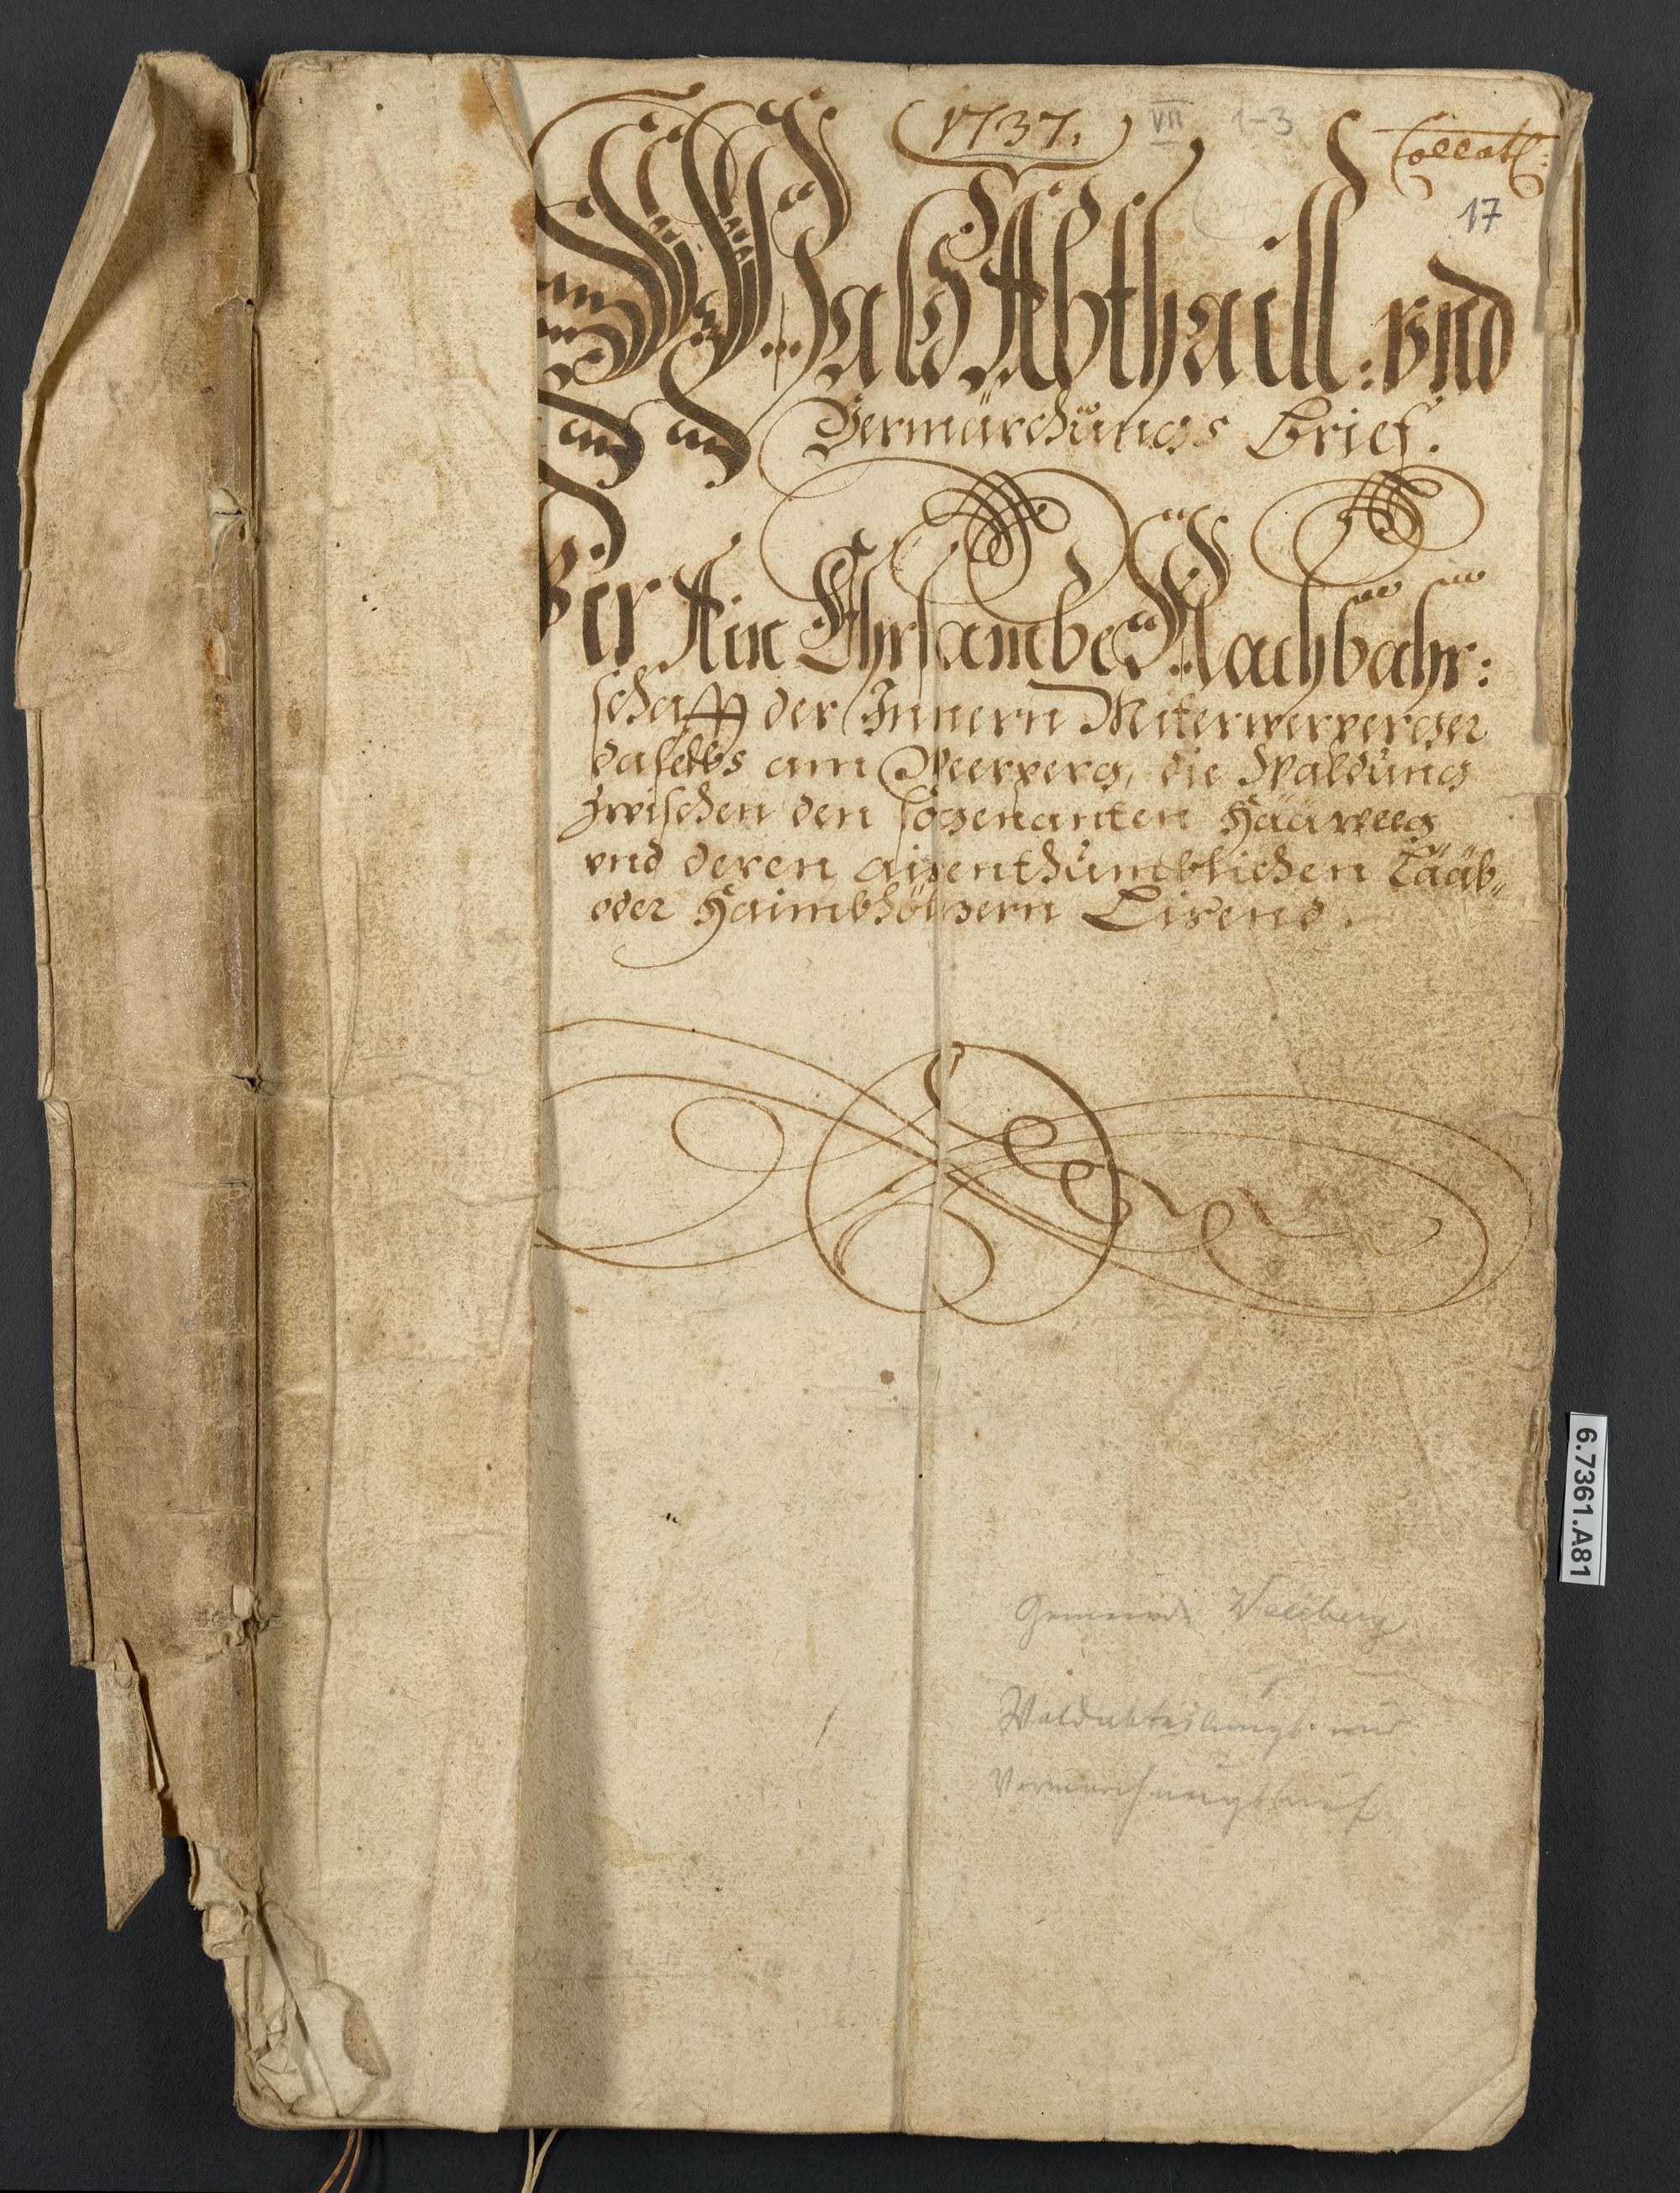 1737.
VII 1-3
Collatl:
17
Wald Abthaill: vnd
Vermärchungs Brief.
Für Ain Ehrsambe Nachbahr:
schafft der Innern Miterwerperger
daselbs am Weerperg, die Waldung
zwischen den sogenanten Hääweeg
vnd deren aigenthumblichen Lääb„
oder Haimbhölzern Ligend.
Gemeinde Weerberg
Waldabteilungs- und
Vermarchungsbrief
6.7361.A81